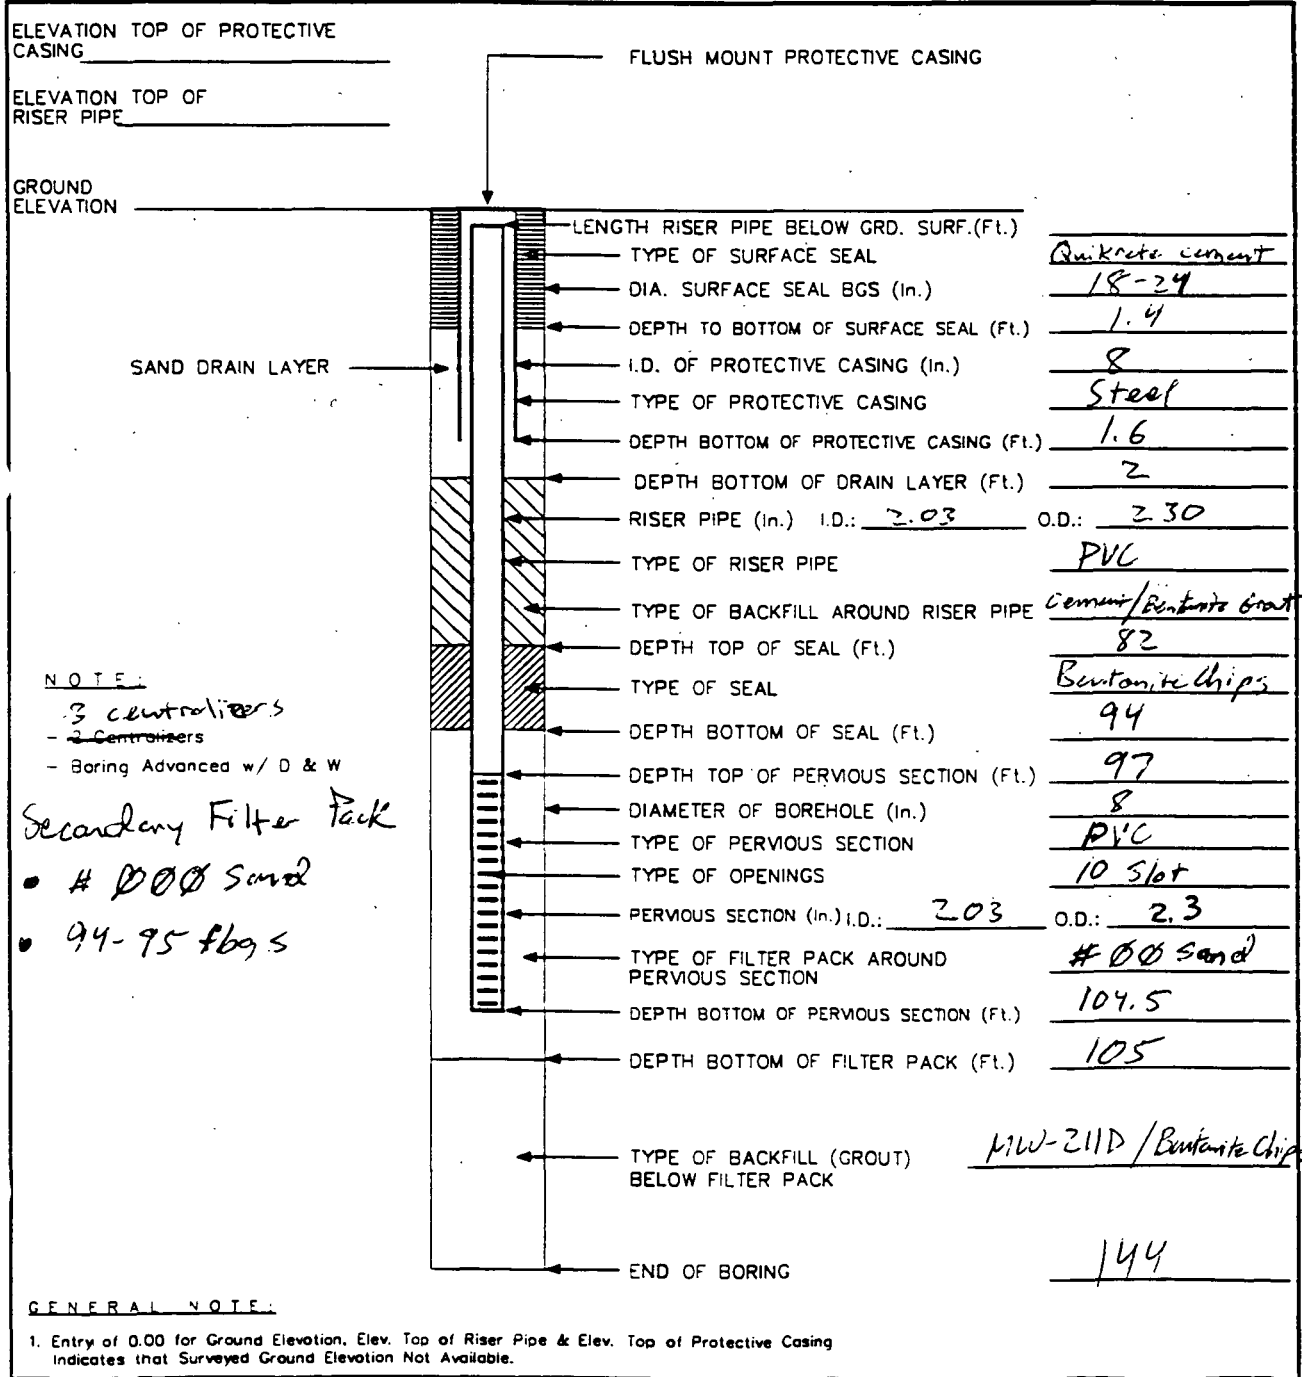 ELEVATION TOP OF PROTECTIVE
CASING
FLUSH MOUNT PROTECTIVE CASING
ELEVATION TOP OF
RISER PIPE
GROUND
ELEVATION
LENGTH RISER PIPE BELOW GRD. SURF.(Ft.)
TYPE OF SURFACE SEAL Quikrete cement
DIA. SURFACE SEAL BGS (In.) 18-24
DEPTH TO BOTTOM OF SURFACE SEAL (Ft.) 1.4
SAND DRAIN LAYER
I.D. OF PROTECTIVE CASING (In.) 8
TYPE OF PROTECTIVE CASING Steel
DEPTH BOTTOM OF PROTECTIVE CASING (Ft.) 1.6
DEPTH BOTTOM OF DRAIN LAYER (Ft.) 2
RISER PIPE (In.) I.D.: 2.03 O.D.: 2.30
TYPE OF RISER PIPE PVC
TYPE OF BACKFILL AROUND RISER PIPE Cement/Bentonite Grout
DEPTH TOP OF SEAL (Ft.) 82
TYPE OF SEAL Bentonite Chips
DEPTH BOTTOM OF SEAL (Ft.) 94
DEPTH TOP OF PERVIOUS SECTION (Ft.) 97
DIAMETER OF BOREHOLE (In.) 8
TYPE OF PERVIOUS SECTION PVC
TYPE OF OPENINGS 10 Slot
PERVIOUS SECTION (In.) I.D.: 2.03 O.D.: 2.3
TYPE OF FILTER PACK AROUND #ØØ Sand
PERVIOUS SECTION
DEPTH BOTTOM OF PERVIOUS SECTION (Ft.) 104.5
DEPTH BOTTOM OF FILTER PACK (Ft.) 105
TYPE OF BACKFILL (GROUT) MW-211D / Bentonite Chips
BELOW FILTER PACK
END OF BORING 144
NOTE:
3 centralizers
- 2 Centralizers
- Boring Advanced w/ D & W
Secondary Filter Pack
• # ØØØ Sand
• 94-95 fbgs
GENERAL NOTE:
1. Entry of 0.00 for Ground Elevation, Elev. Top of Riser Pipe & Elev. Top of Protective Casing
Indicates that Surveyed Ground Elevation Not Available.